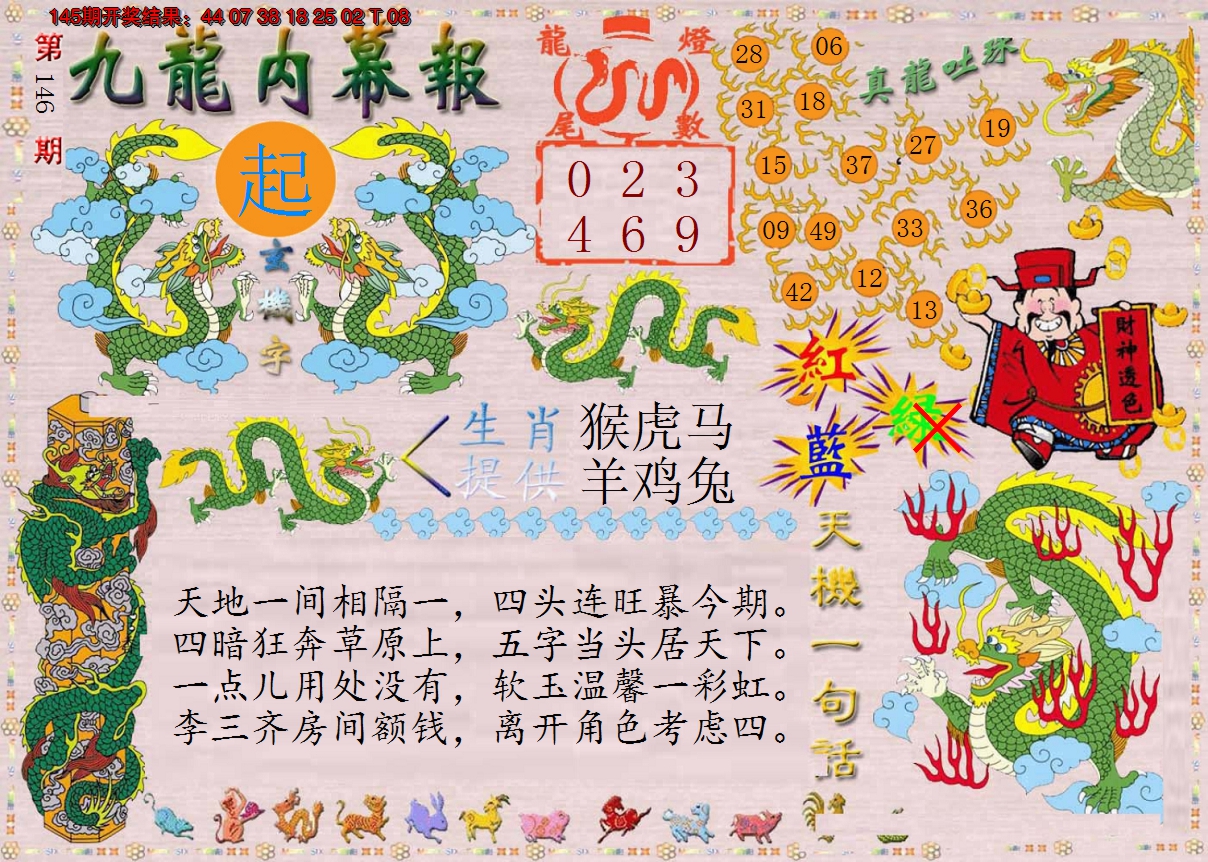 145期开奖结果：44 07 38 18 25 02 T 08
第146期
九龍内幕報
起
玄機字
龍燈尾數
0 2 3
4 6 9
真龍吐珠
28 06
31 18
15 37 27 19
09 49 33 36
42 12 13
財神透色
紅
綠
藍
生肖提供
猴虎马
羊鸡兔
天地一间相隔一，四头连旺暴今期。
四暗狂奔草原上，五字当头居天下。
一点儿用处没有，软玉温馨一彩虹。
李三齐房间额钱，离开角色考虑四。
天機一句话